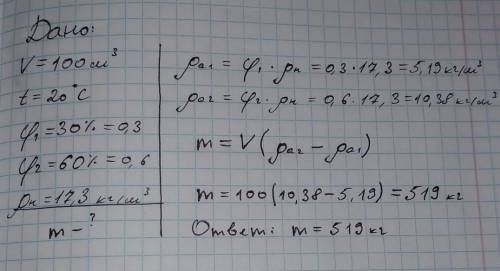 Дано:
V = 100 см³
t = 20°C
φ₁ = 30% = 0,3
φ₂ = 60% = 0,6
ρн = 17,3 кг/м³
m - ?
ρа₁ = φ₁ · ρн = 0,3 · 17,3 = 5,19 кг/м³
ρа₂ = φ₂ · ρн = 0,6 · 17,3 = 10,38 кг/м³
m = V(ρа₂ - ρа₁)
m = 100(10,38 - 5,19) = 519 кг
Ответ: m = 519 кг